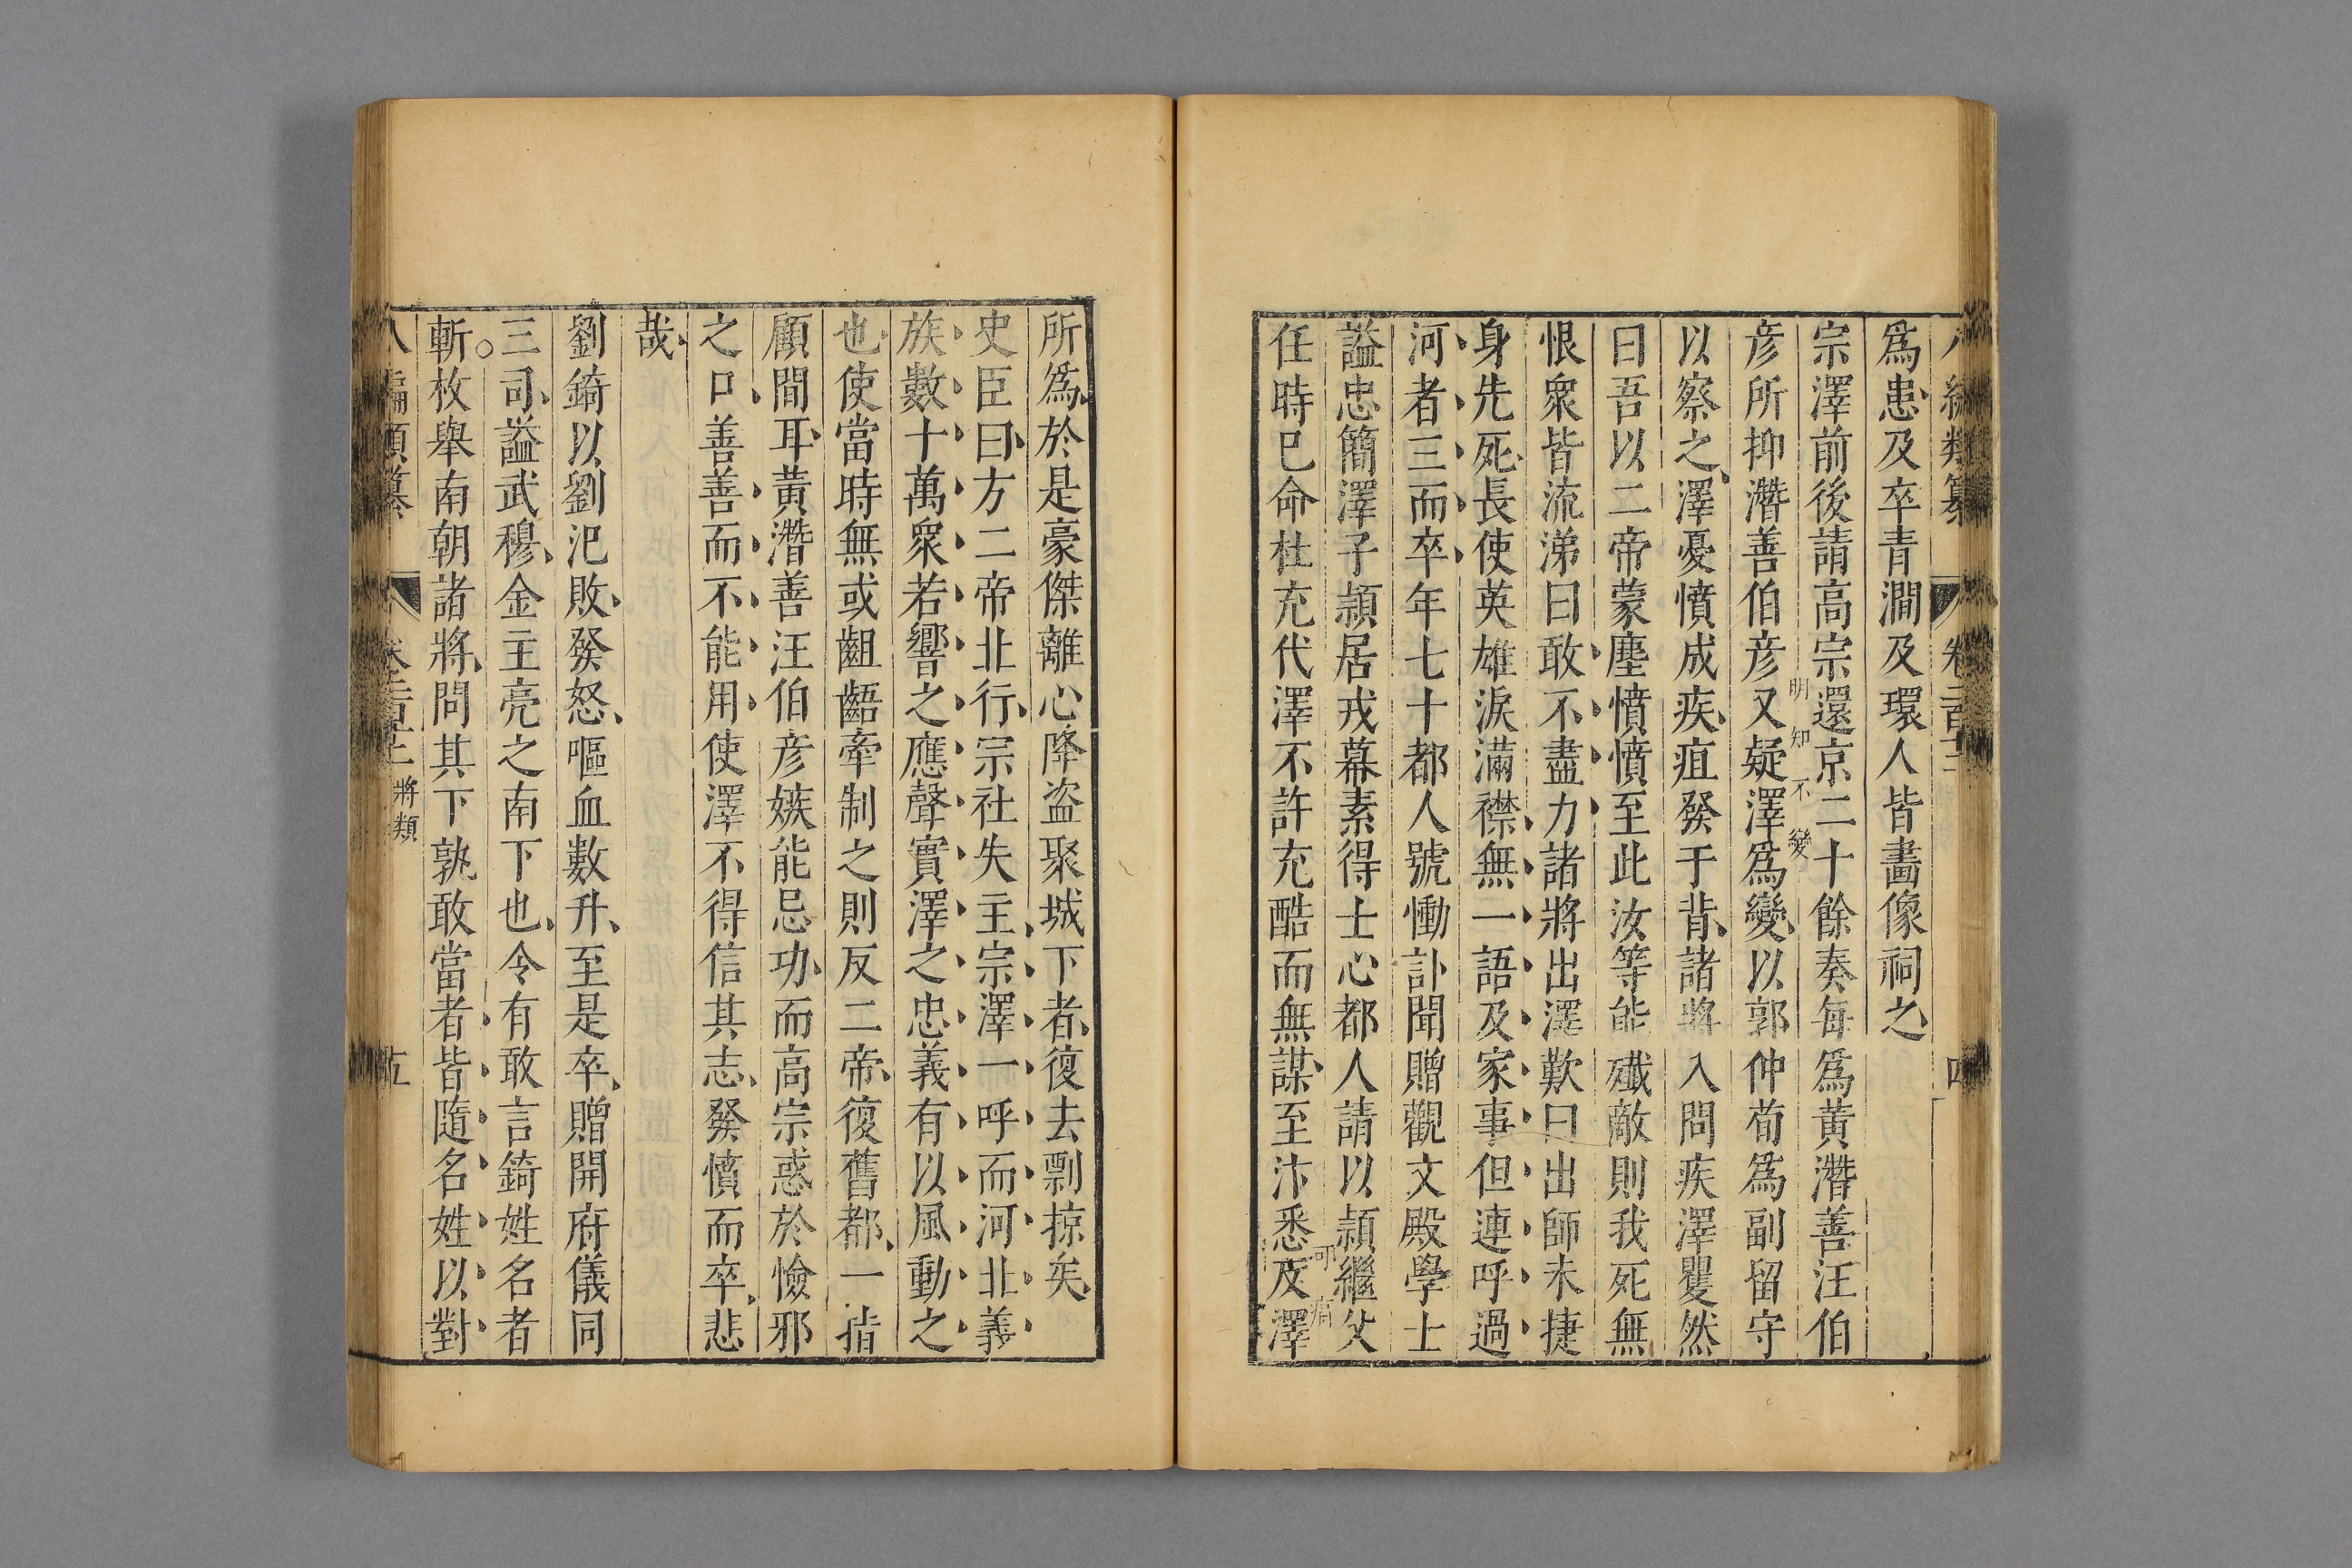 八編類纂 卷二百十二 四
爲患及卒青澗及環人皆畫像祠之
宗澤前後請高宗還京二十餘奏每爲黃潛善汪伯
彥所抑潛善伯彥又疑澤爲變以郭仲荀爲副留守
明知不變
以察之澤憂憤成疾疽發于背諸將入問疾澤矍然
曰吾以二帝蒙塵憤憤至此汝等能殲敵則我死無
恨衆皆流涕曰敢不盡力諸將出澤歎曰出師未捷
身先死長使英雄淚滿襟無一語及家事但連呼過
河者三而卒年七十都人號慟訃聞贈觀文殿學士
謚忠簡澤子頴居戎幕素得士心都人請以頴繼父
任時已命杜充代澤不許充酷而無謀至汴悉反澤
可痛
所爲於是豪傑離心降盜聚城下者復去剽掠矣
史臣曰方二帝北行宗社失主宗澤一呼而河北義
族數十萬衆若響之應聲實澤之忠義有以風動之
也使當時無或齟齬牽制之則反二帝復舊都一指
顧間耳黃潛善汪伯彥嫉能忌功而高宗惑於憸邪
之口善善而不能用使澤不得信其志發憤而卒悲
哉
劉錡以劉汜敗發怒嘔血數升至是卒贈開府儀同
三司謚武穆金主亮之南下也令有敢言錡姓名者
斬枚舉南朝諸將問其下孰敢當者皆隨名姓以對
八編類纂 將類 五